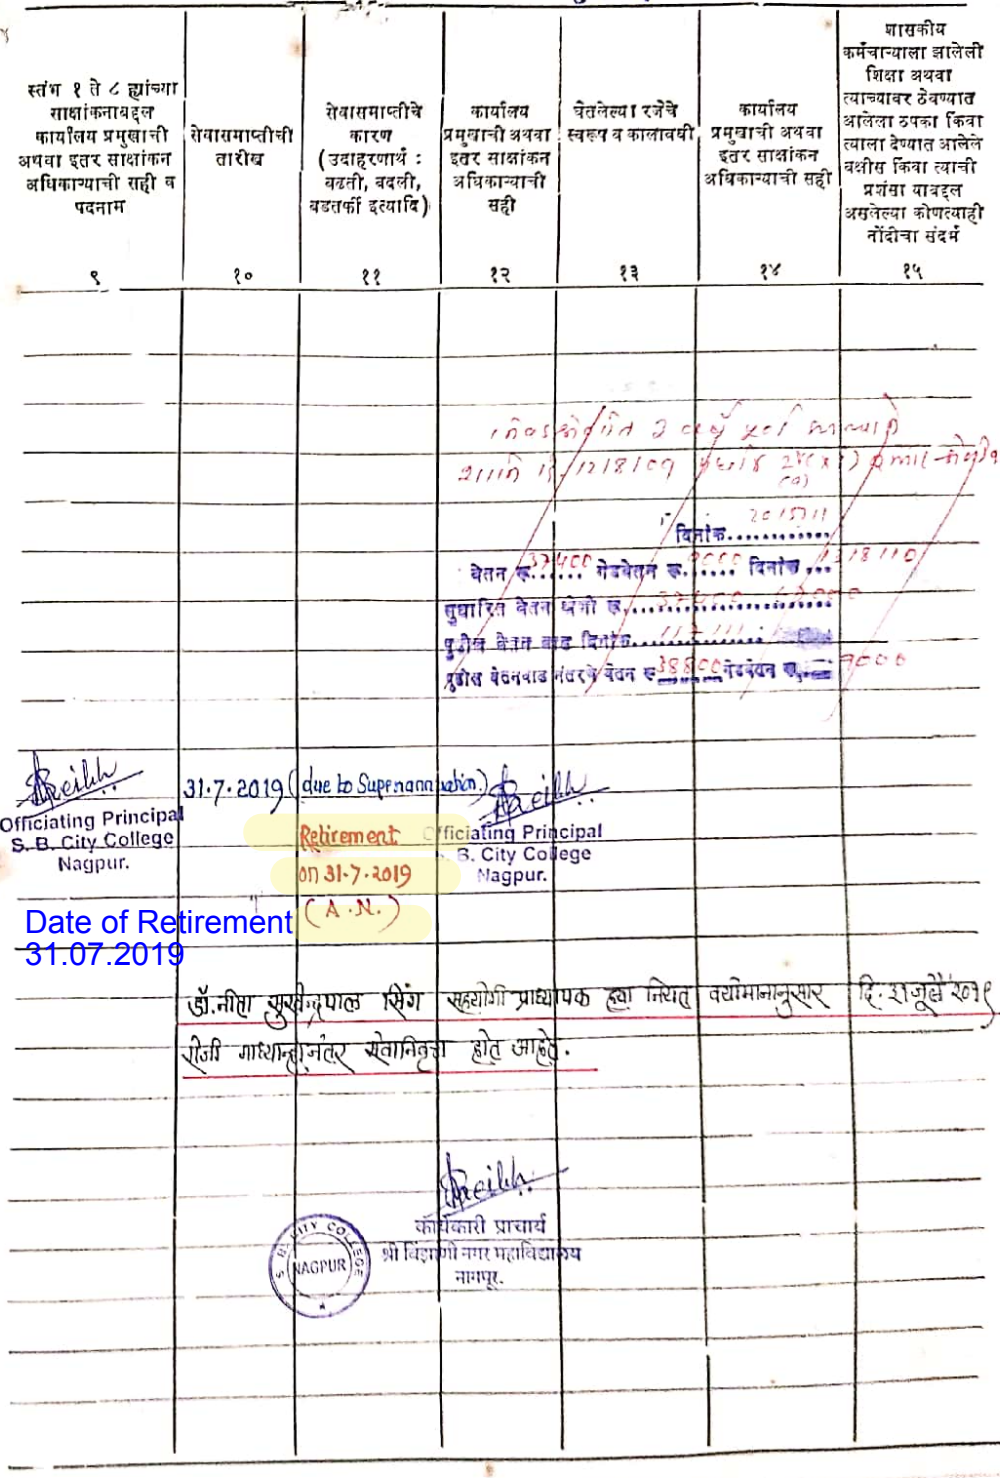 स्तंभ १ ते ८ ह्यांच्या
साक्षांकनाबद्दल
कार्यालय प्रमुखाची
अथवा इतर साक्षांकन
अधिकाऱ्याची सही व
पदनाम
९
सेवासमाप्तीची
तारीख
१०
सेवासमाप्तीचे
कारण
(उदाहरणार्थ :
बढती, बदली,
बडतर्फी इत्यादि)
११
कार्यालय
प्रमुखाची अथवा
इतर साक्षांकन
अधिकाऱ्याची
सही
१२
घेतलेल्या रजेचे
स्वरूप व कालावधी
१३
कार्यालय
प्रमुखाची अथवा
इतर साक्षांकन
अधिकाऱ्याची सही
१४
शासकीय
कर्मचाऱ्याला झालेली
शिक्षा अथवा
त्याच्यावर ठेवण्यात
आलेला ठपका किंवा
त्याला देण्यात आलेले
बक्षीस किंवा त्याची
प्रशंसा याबद्दल
असलेल्या कोणत्याही
नोंदीचा संदर्भ
१५
दिनांक............
वेतन रु. 37400 ग्रेडवेतन रु. 9000 दिनांक ...
सुधारित वेतन श्रेणी रु.
पुढील वेतन वाढ दिनांक
पुढील वेतनवाढ नंतरचे वेतन रु 38800 ग्रेडवेतन रु. 9000
31.7.2019 (due to Superannuation.)
Officiating Principal
S. B. City College
Nagpur.
Retirement
on 31.7.2019
(A.N.)
Officiating Principal
B. City College
Nagpur.
Date of Retirement
31.07.2019
डॉ. नीता सुरेन्द्रपाल सिंग सहयोगी प्राध्यापक ह्या नियत वयोमानानुसार दि. ३१ जूलै २०१९
रोजी माध्यान्हानंतर सेवानिवृत्त होत आहेत.
कार्यकारी प्राचार्य
श्री बिंझाणी नगर महाविद्यालय
नागपूर.
S. B. CITY COLLEGE
NAGPUR